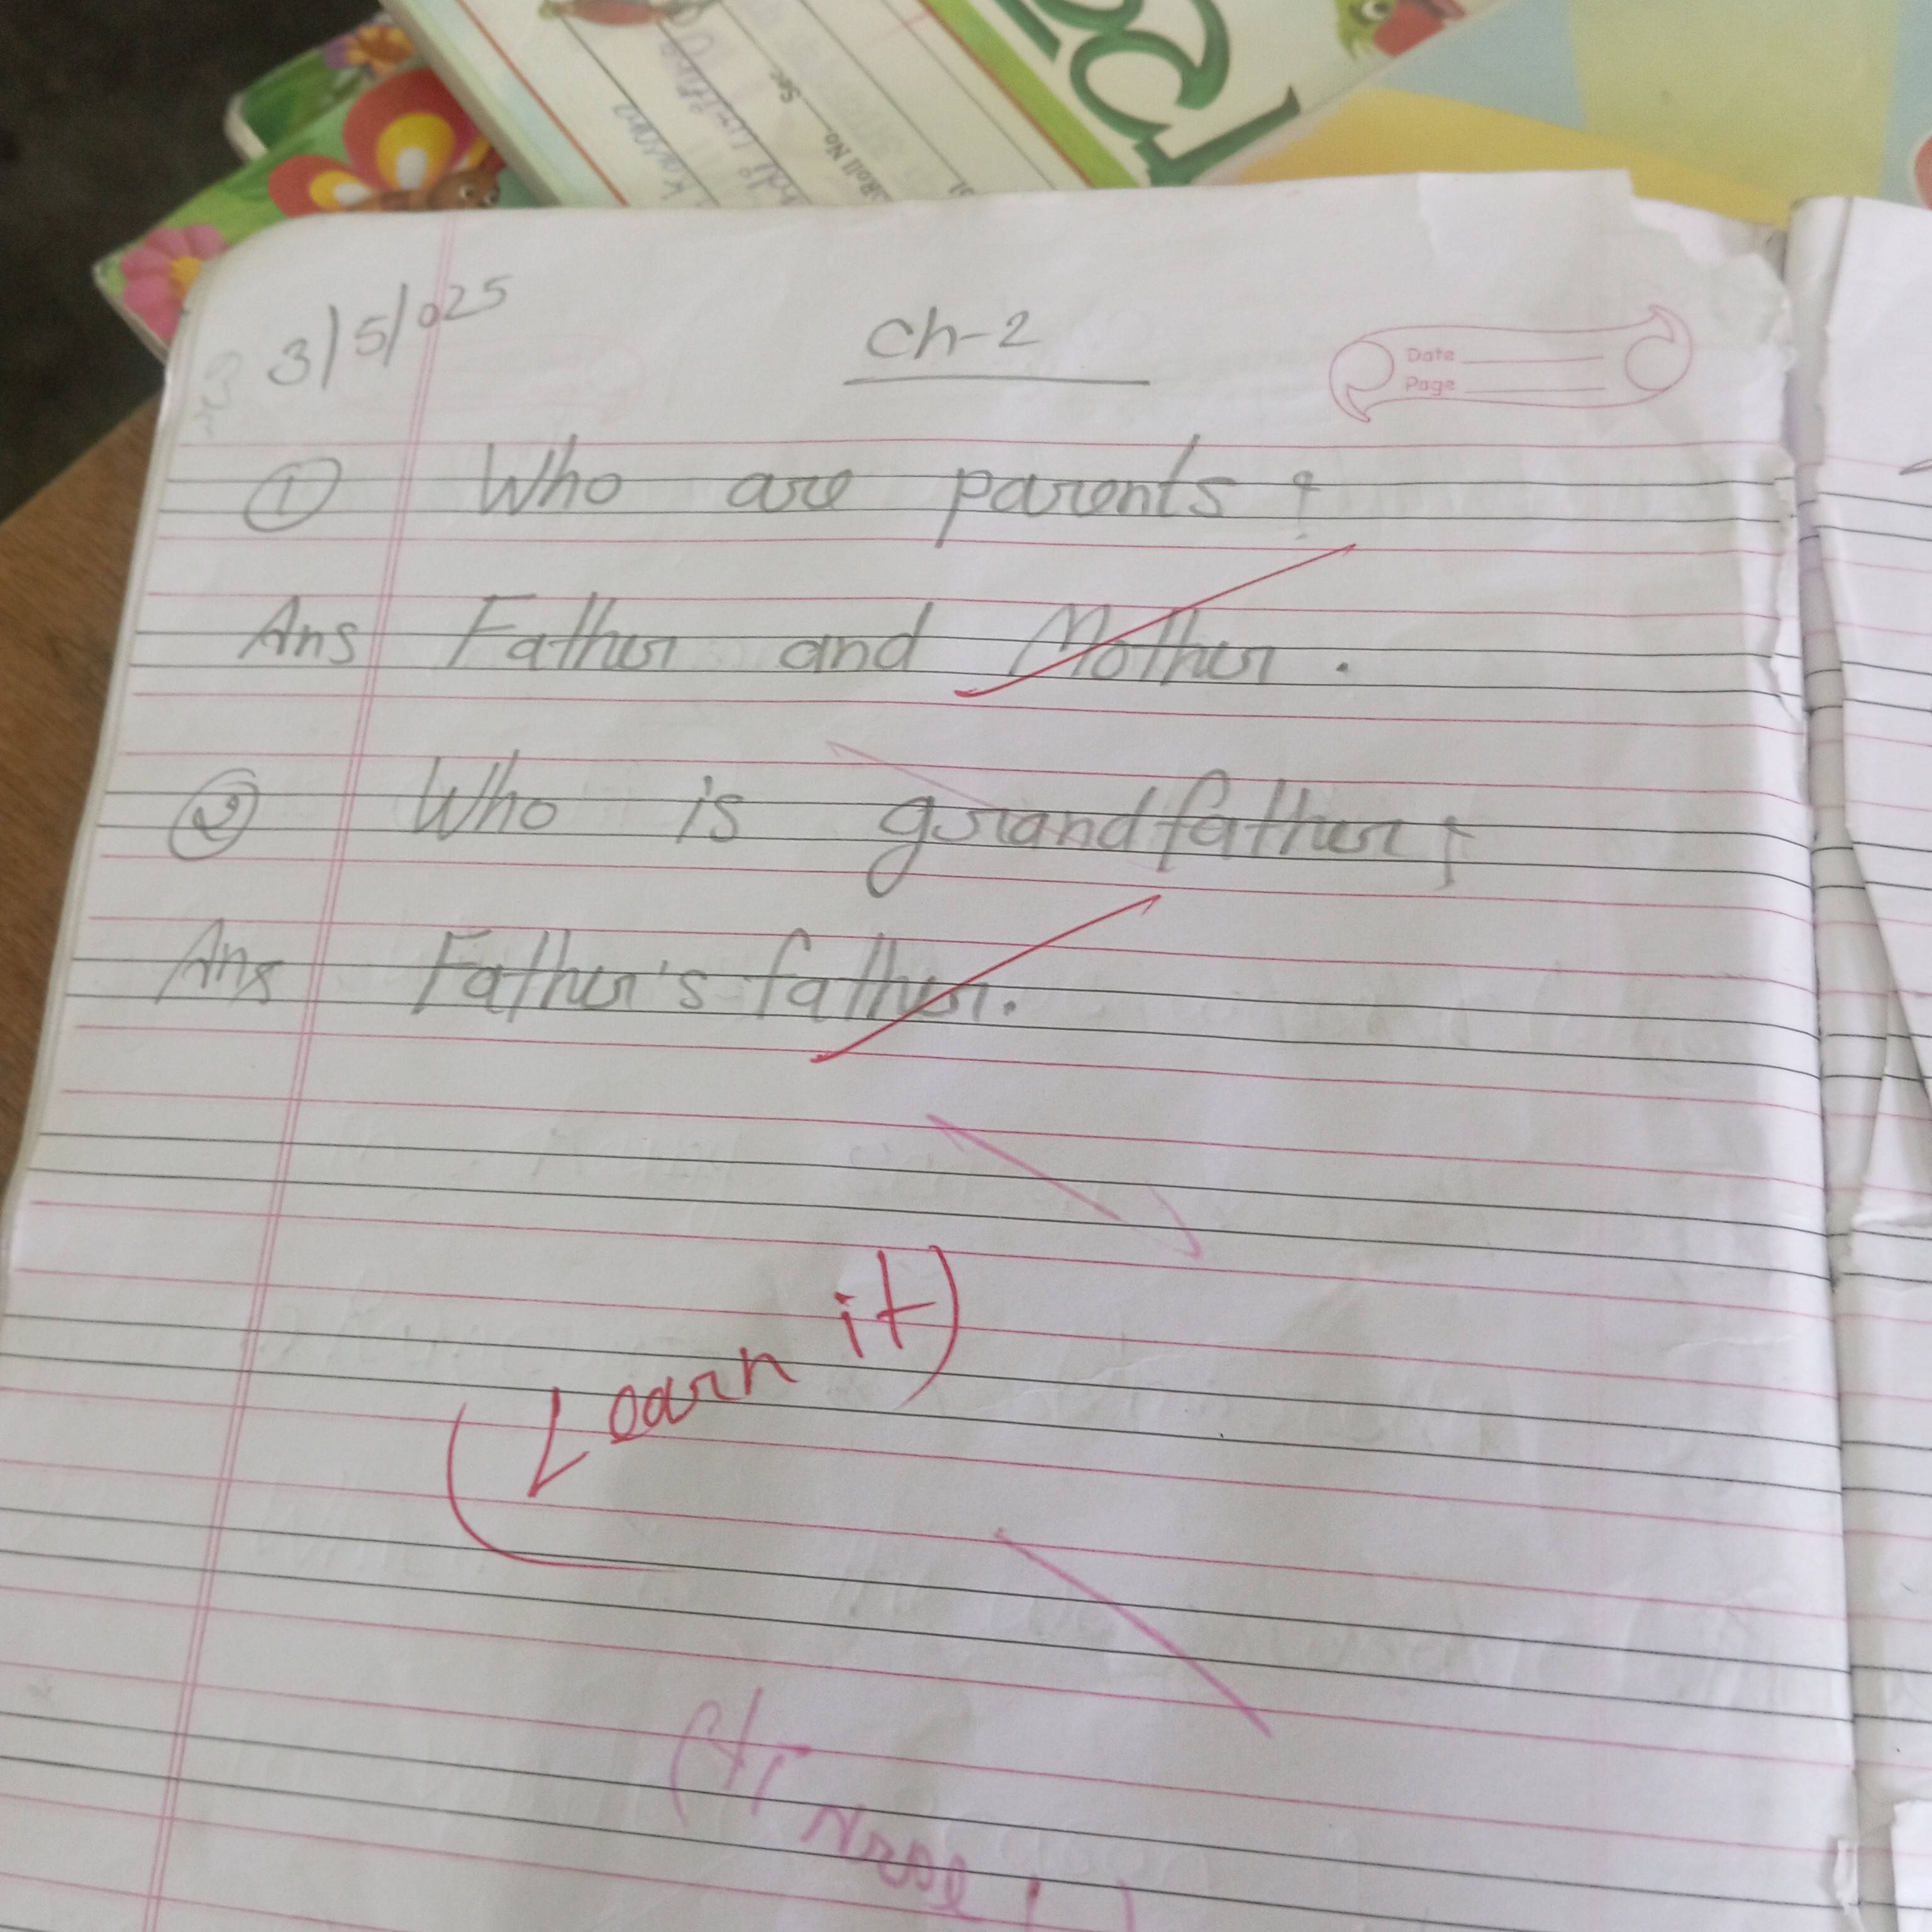 Sec.
Roll No.
3/5/025
Ch-2
Date
Page
① Who are parents?
Ans Father and Mother.
② Who is grandfather?
Ans Father's father.
(Learn it)